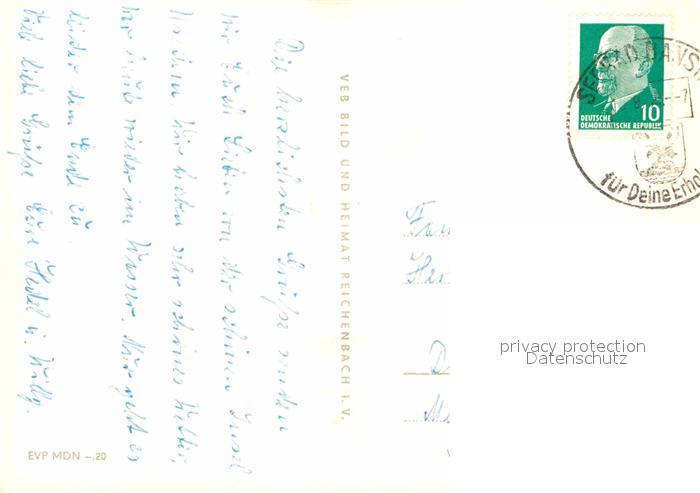 Die herzlichsten Grüße senden
wir Euch Lieben von der schönen Insel
Wir haben sehr schönes Wetter,
wir sind wieder im Wasser. Nur geht es
leider dem Ende zu.
Viele liebe Grüße Eure Hedel u. Willy.
VEB BILD UND HEIMAT REICHENBACH i. V.
EVP MDN –,20
DEUTSCHE
DEMOKRATISCHE REPUBLIK
10
SEEBAD BANSI
für Deine Erhol
Fam
Her
D
privacy protection
Datenschutz